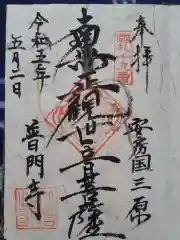 奉拝
安房国三原
南無正観世音菩薩
令和五年
五月二日
普門寺